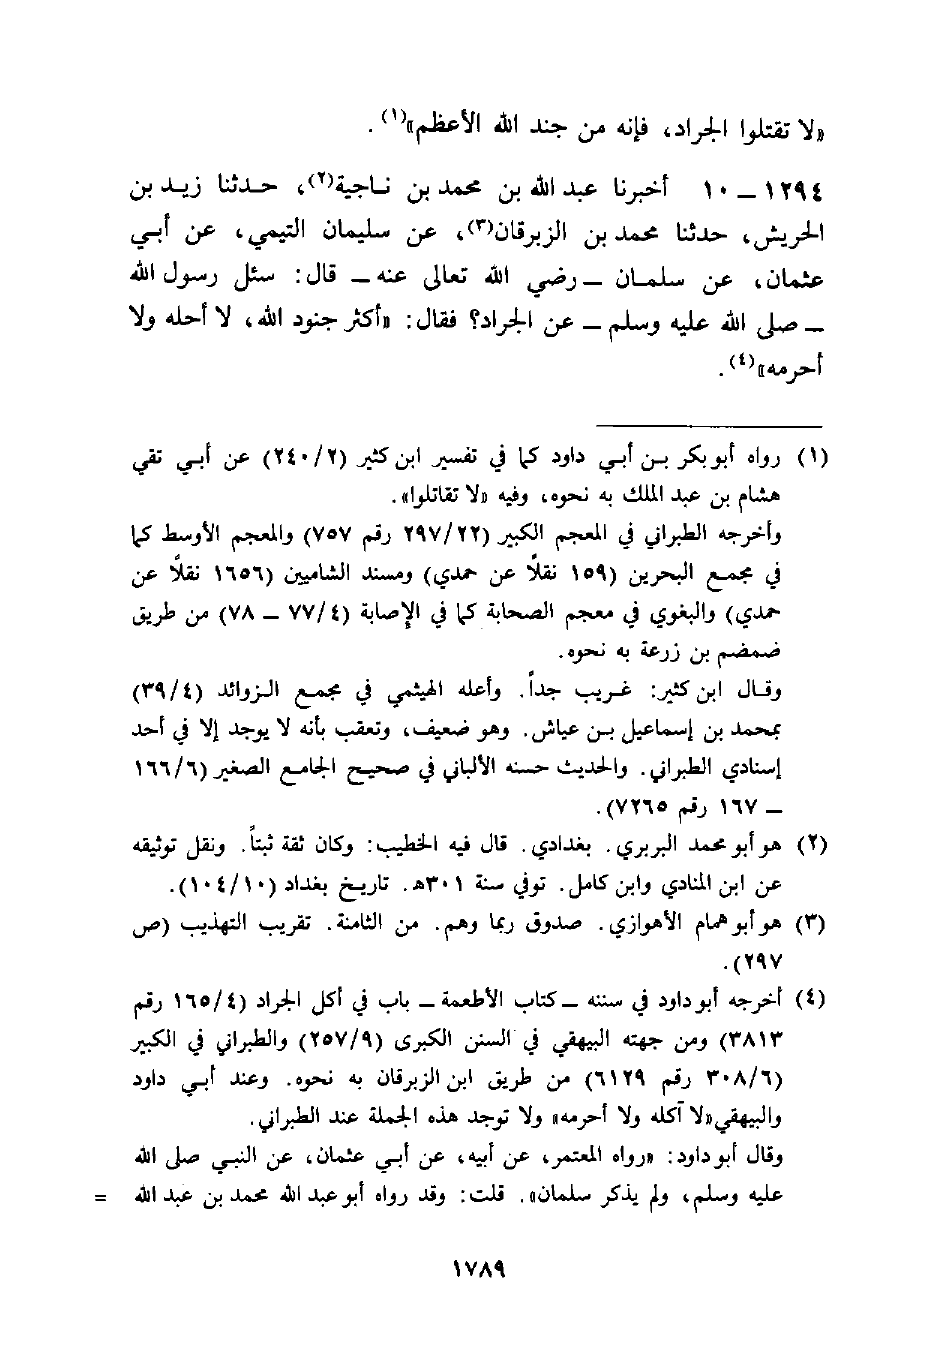 «لا تقتلوا الجراد، فإنه من جند الله الأعظم»(١).
١٢٩٤ – ١٠ أخبرنا عبد الله بن محمد بن ناجية(٢)، حدثنا زيد بن
الحريش، حدثنا محمد بن الزبرقان(٣)، عن سليمان التيمي، عن أبي
عثمان، عن سلمان – رضي الله تعالى عنه – قال: سئل رسول الله
– صلى الله عليه وسلم – عن الجراد؟ فقال: «أكثر جنود الله، لا أحله ولا
أحرمه»(٤).
(١) رواه أبو بكر بن أبي داود كما في تفسير ابن كثير (٢/٢٤٠) عن أبي تقي
هشام بن عبد الملك به نحوه، وفيه «لا تقاتلوا».
وأخرجه الطبراني في المعجم الكبير (٢٢/٢٩٧ رقم ٧٥٧) والمعجم الأوسط كما
في مجمع البحرين (١٥٩ نقلاً عن حمدي) ومسند الشاميين (١٦٥٦ نقلاً عن
حمدي) والبغوي في معجم الصحابة كما في الإصابة (٤/٧٧ – ٧٨) من طريق
ضمضم بن زرعة به نحوه.
وقال ابن كثير: غريب جداً. وأعله الهيثمي في مجمع الزوائد (٤/٣٩)
بمحمد بن إسماعيل بن عياش. وهو ضعيف، وتعقب بأنه لا يوجد إلا في أحد
إسنادي الطبراني. والحديث حسنه الألباني في صحيح الجامع الصغير (٦/١٦٦
– ١٦٧ رقم ٧٢٦٥).
(٢) هو أبو محمد البربري. بغدادي. قال فيه الخطيب: وكان ثقة ثبتاً. ونقل توثيقه
عن ابن المنادي وابن كامل. توفي سنة ٣٠١هـ. تاريخ بغداد (١٠/١٠٤).
(٣) هو أبو همام الأهوازي. صدوق ربما وهم. من الثامنة. تقريب التهذيب (ص
٢٩٧).
(٤) أخرجه أبو داود في سننه – كتاب الأطعمة – باب في أكل الجراد (٤/١٦٥ رقم
٣٨١٣) ومن جهته البيهقي في السنن الكبرى (٩/٢٥٧) والطبراني في الكبير
(٦/٣٠٨ رقم ٦١٢٩) من طريق ابن الزبرقان به نحوه. وعند أبي داود
والبيهقي «لا آكله ولا أحرمه» ولا توجد هذه الجملة عند الطبراني.
وقال أبو داود: «رواه المعتمر، عن أبيه، عن أبي عثمان، عن النبي صلى الله
عليه وسلم، ولم يذكر سلمان». قلت: وقد رواه أبو عبد الله محمد بن عبد الله =
١٧٨٩